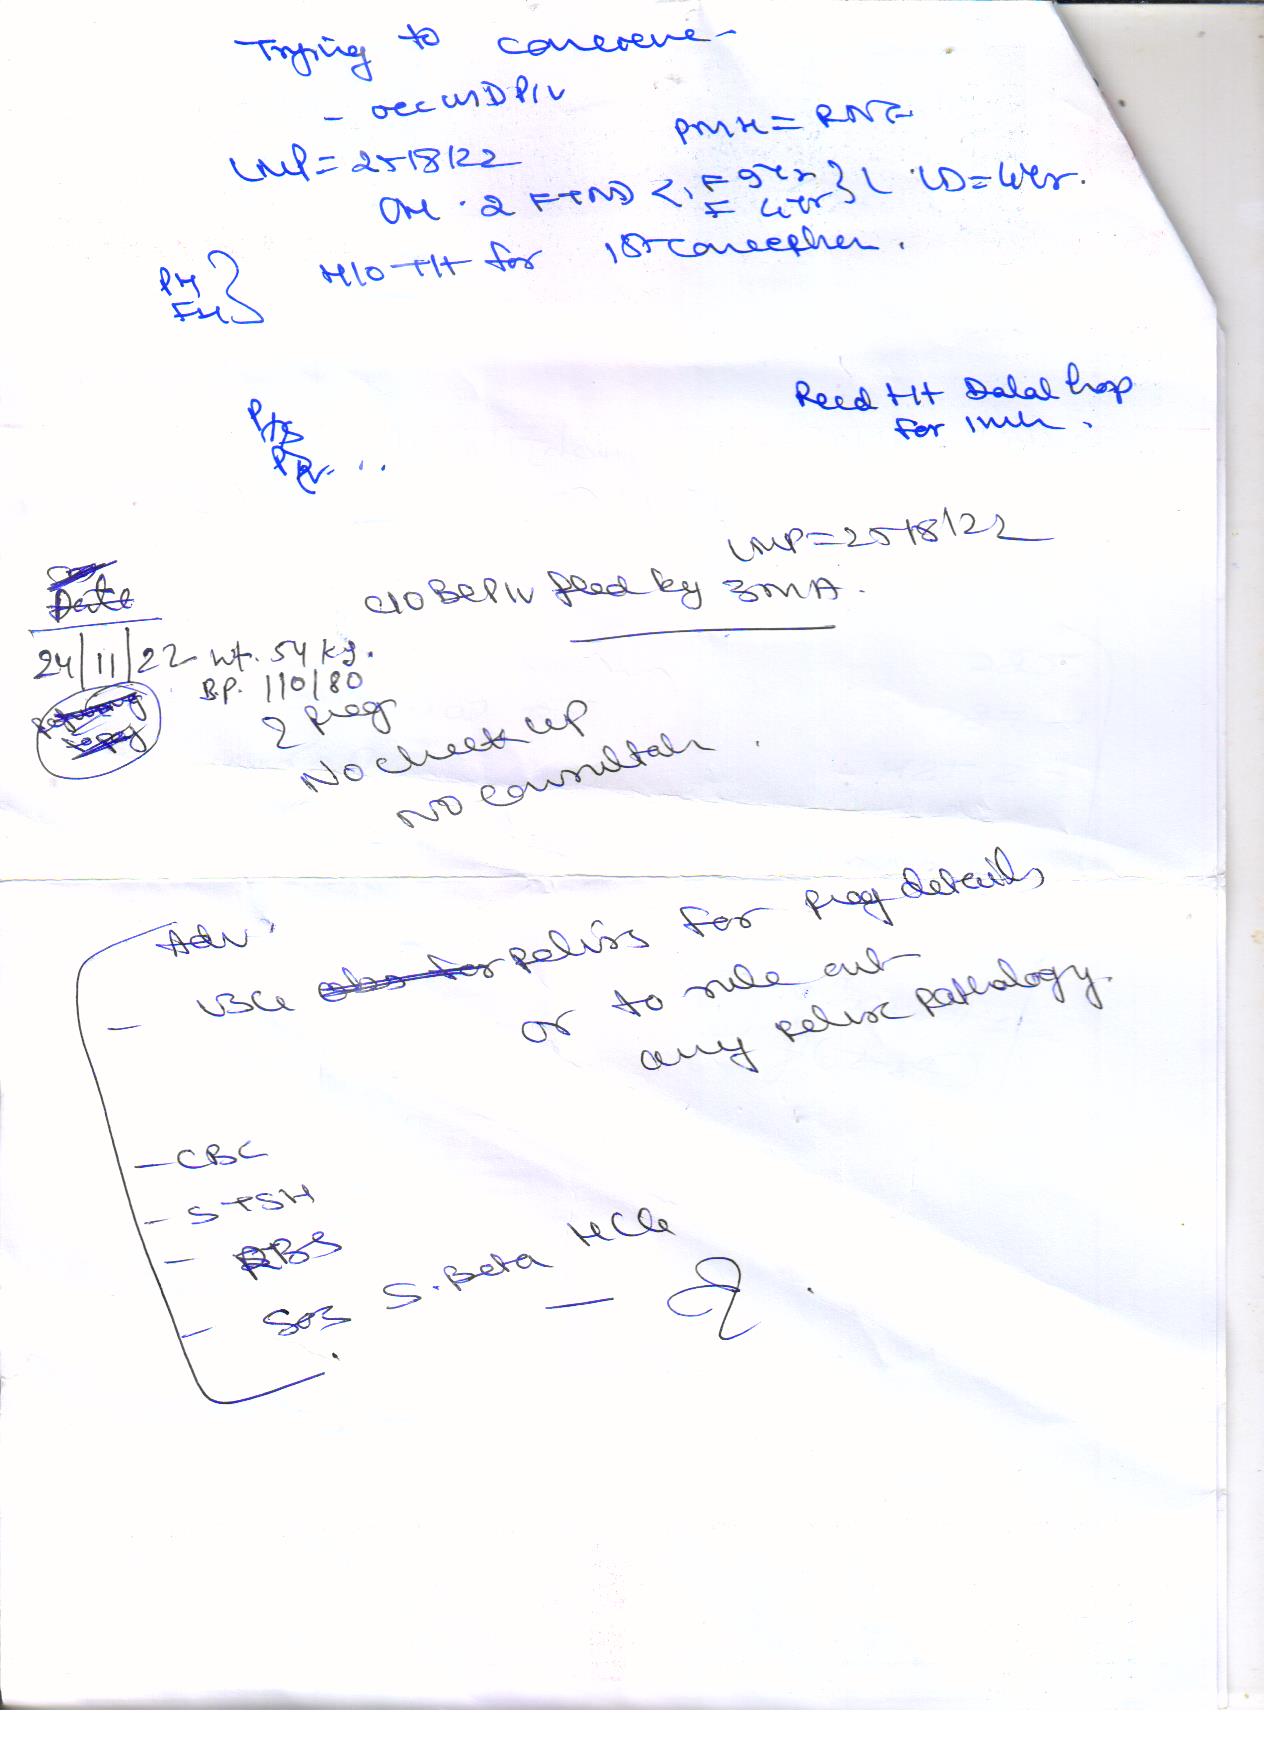 Trying to conceive
- occ WD P/V
LMP = 25/8/22
PMH = RNF
OH . 2 FTND < 1, F 9yr } L . LD = 4yr.
F 4yr
PH } H/O TIt for 1st conception.
FH
Recd TIt Dalal hosp
for 1mth.
P/S
P/V
LMP = 25/8/22
C/O BLP/V foll by 3MA.
Date
24/11/22 wt. 54 kg.
B.P. 110/80
? preg
No check up
NO consultatn.
Adv
- USG pelvis for preg details
or to rule out
any pelvic pathology.
- CBC
- S TSH
- RBS
- SOS S. Beta HCG